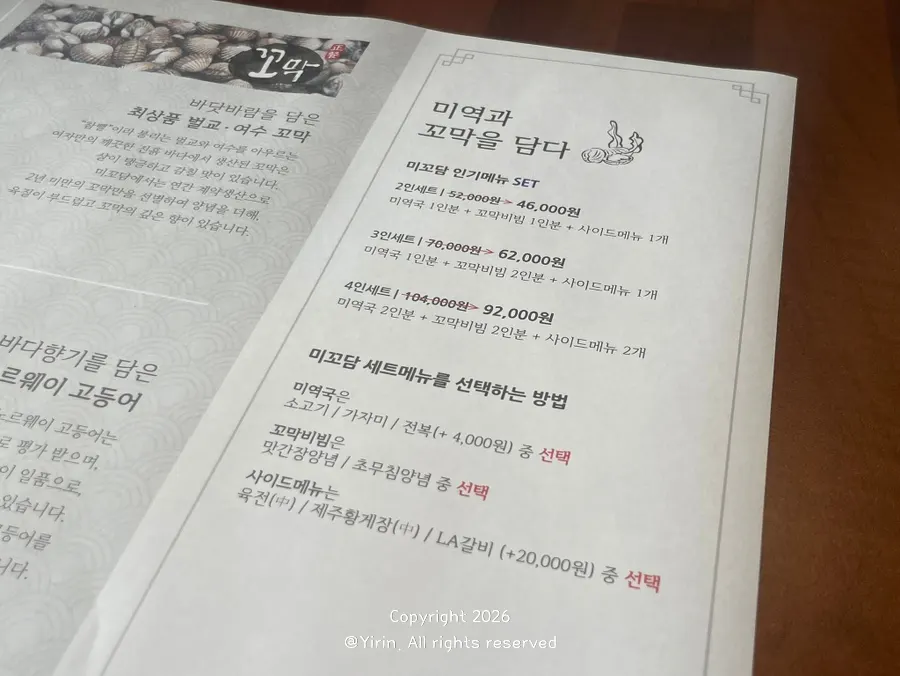 꼬막
바닷바람을 담은
최상품 벌교·여수 꼬막
여자만의 깨끗한 진흙 바다에서 생산된 꼬막은
살이 탱글하고 감칠 맛이 있습니다.
미꼬담에서는 연간 계약생산으로
2년 미만의 꼬막만을 선별하여 양념을 더해,
육질이 부드럽고 꼬막의 깊은 향이 있습니다.
바다향기를 담은
르웨이 고등어
노르웨이 고등어는
로 평가 받으며,
이 일품으로
있습니다.
고등어를
니다.
미역과
꼬막을 담다
미꼬담 인기메뉴 SET
2인세트 | 52,000원 > 46,000원
미역국 1인분 + 꼬막비빔 1인분 + 사이드메뉴 1개
3인세트 | 70,000원 > 62,000원
미역국 1인분 + 꼬막비빔 2인분 + 사이드메뉴 1개
4인세트 | 104,000원 > 92,000원
미역국 2인분 + 꼬막비빔 2인분 + 사이드메뉴 2개
미꼬담 세트메뉴를 선택하는 방법
미역국은
소고기 / 가자미 / 전복(+ 4,000원) 중 선택
꼬막비빔은
맛간장양념 / 초무침양념 중 선택
사이드메뉴는
육전(中) / 제주황게장(中) / LA갈비 (+20,000원) 중 선택
Copyright 2026
@Yirin. All rights reserved